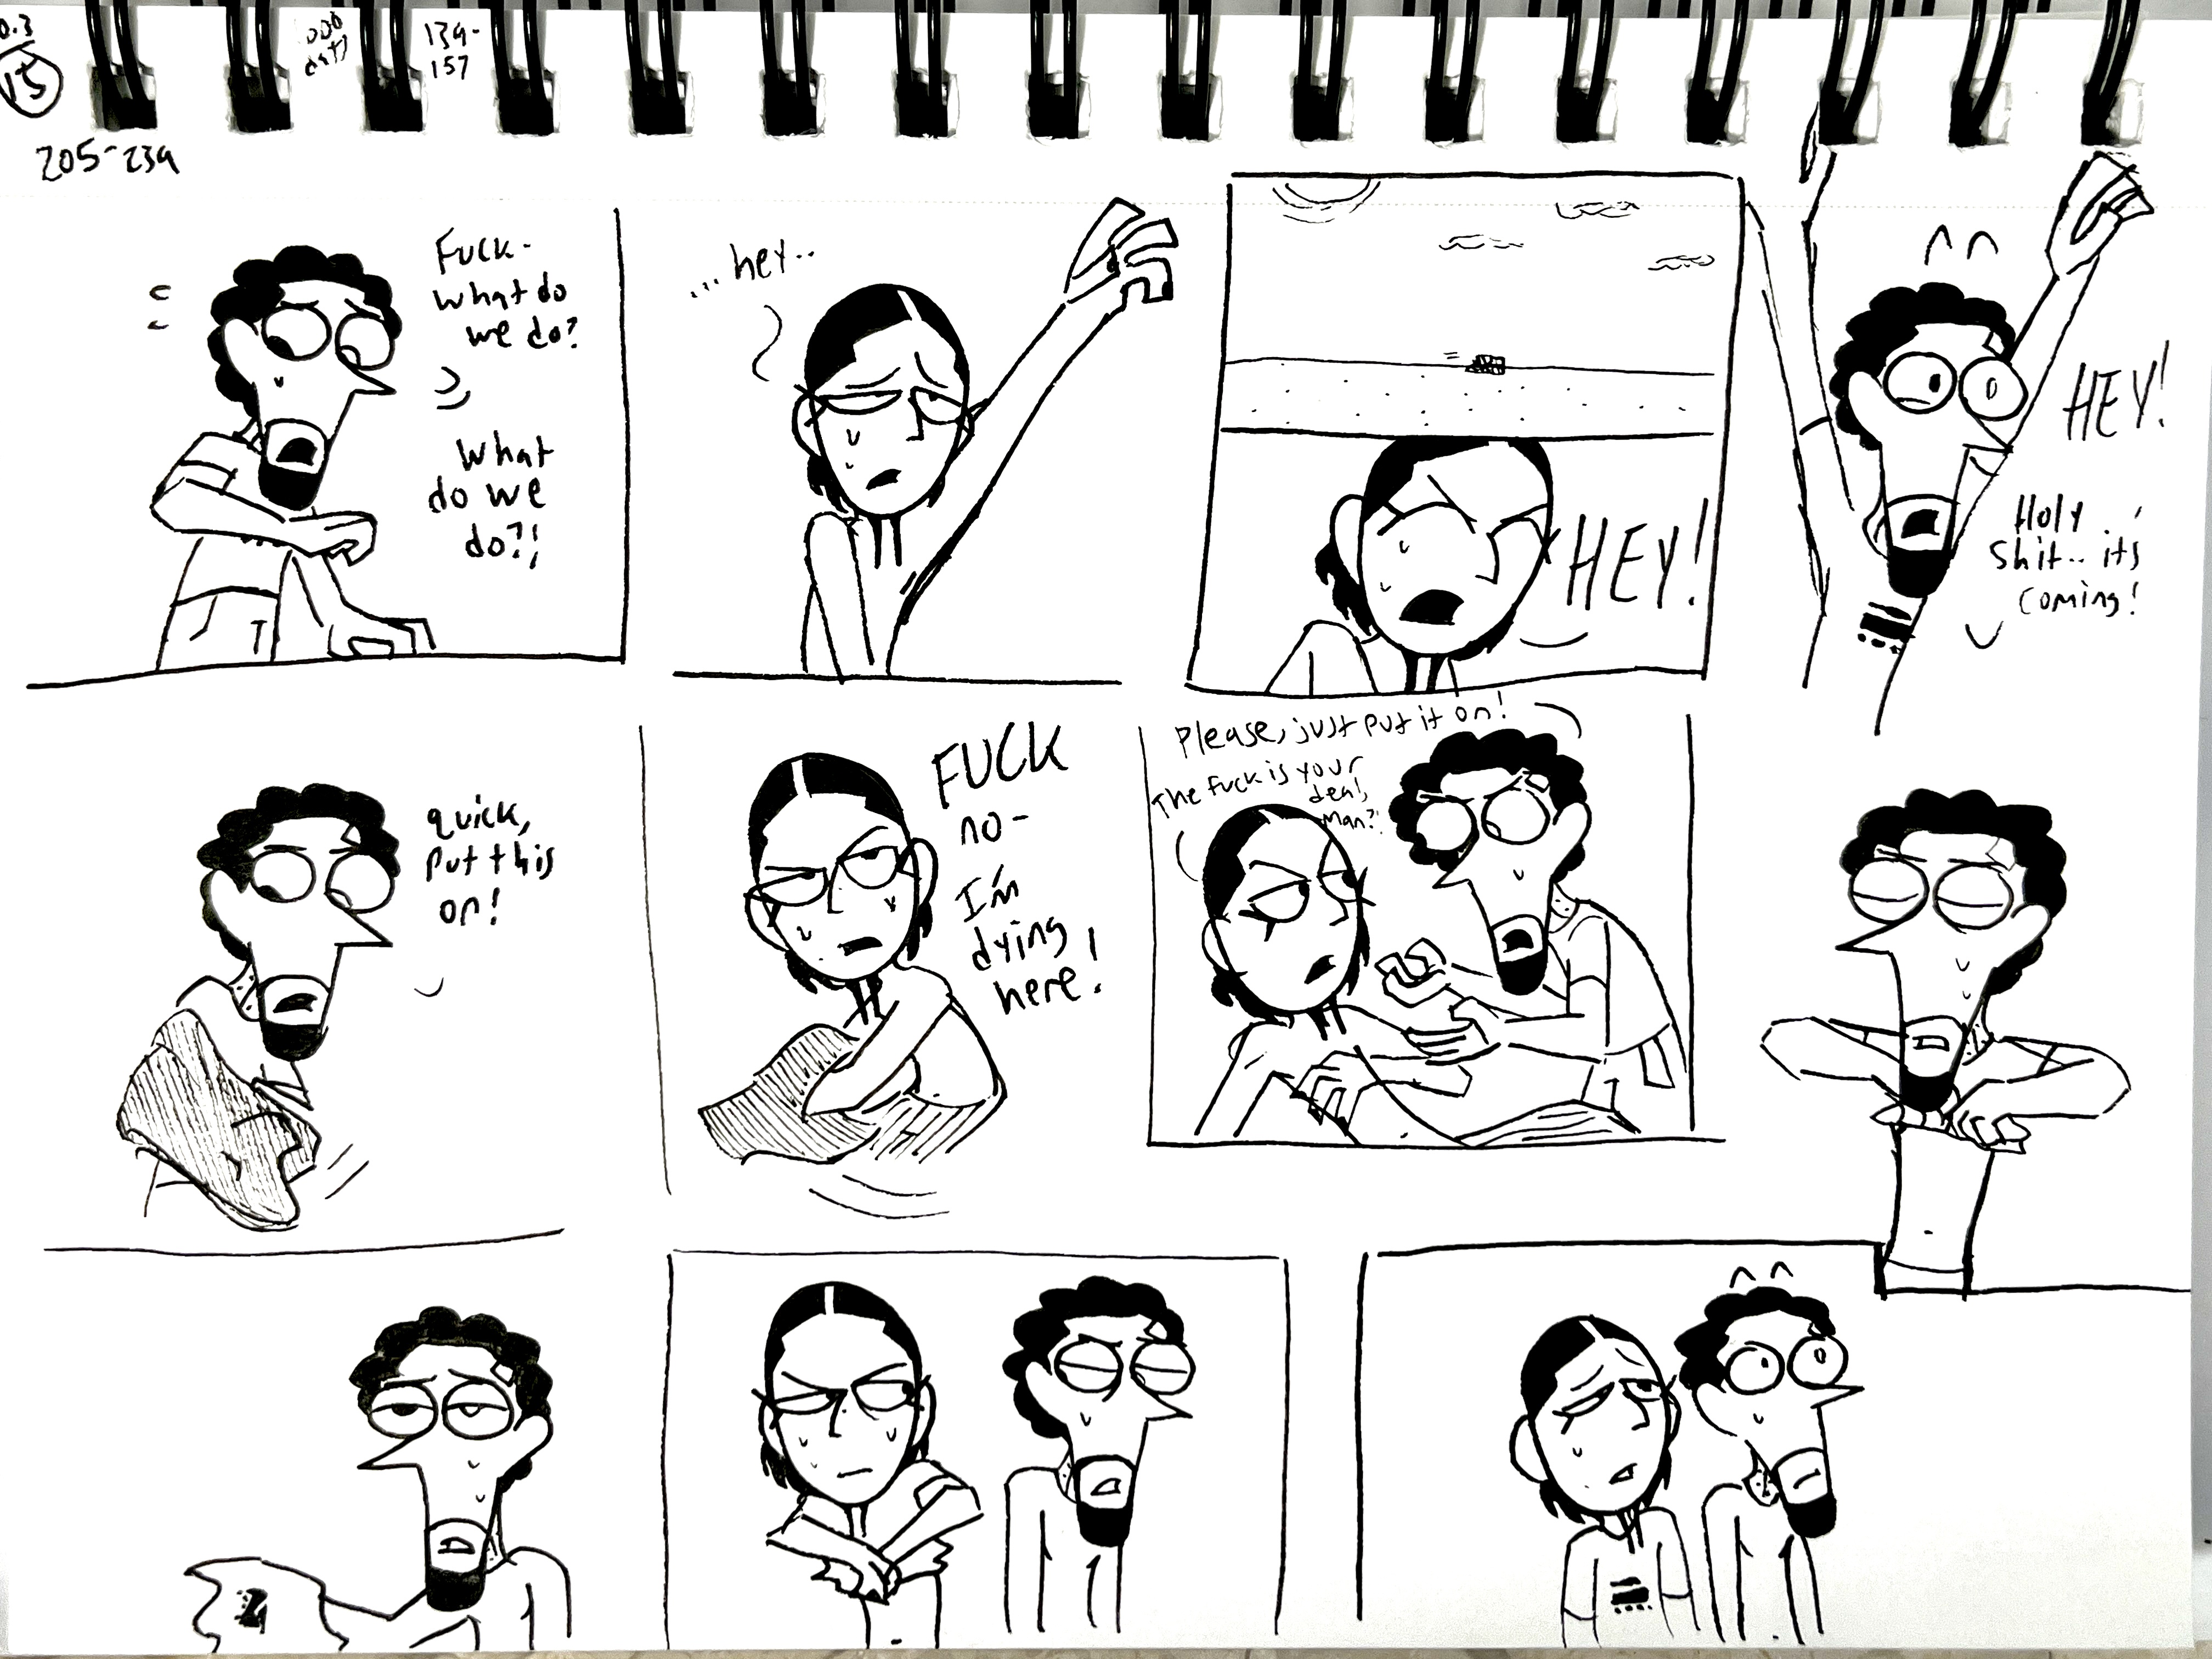 15
139-
157
205-239
Fuck-
what do
we do?
What
do we
do?!
...hey..
HEY!
HEY!
Holy
shit.. its
coming!
quick,
put this
on!
FUCK
no-
I'm
dying
here!
Please, just put it on!
The fuck is your
deal,
man?!